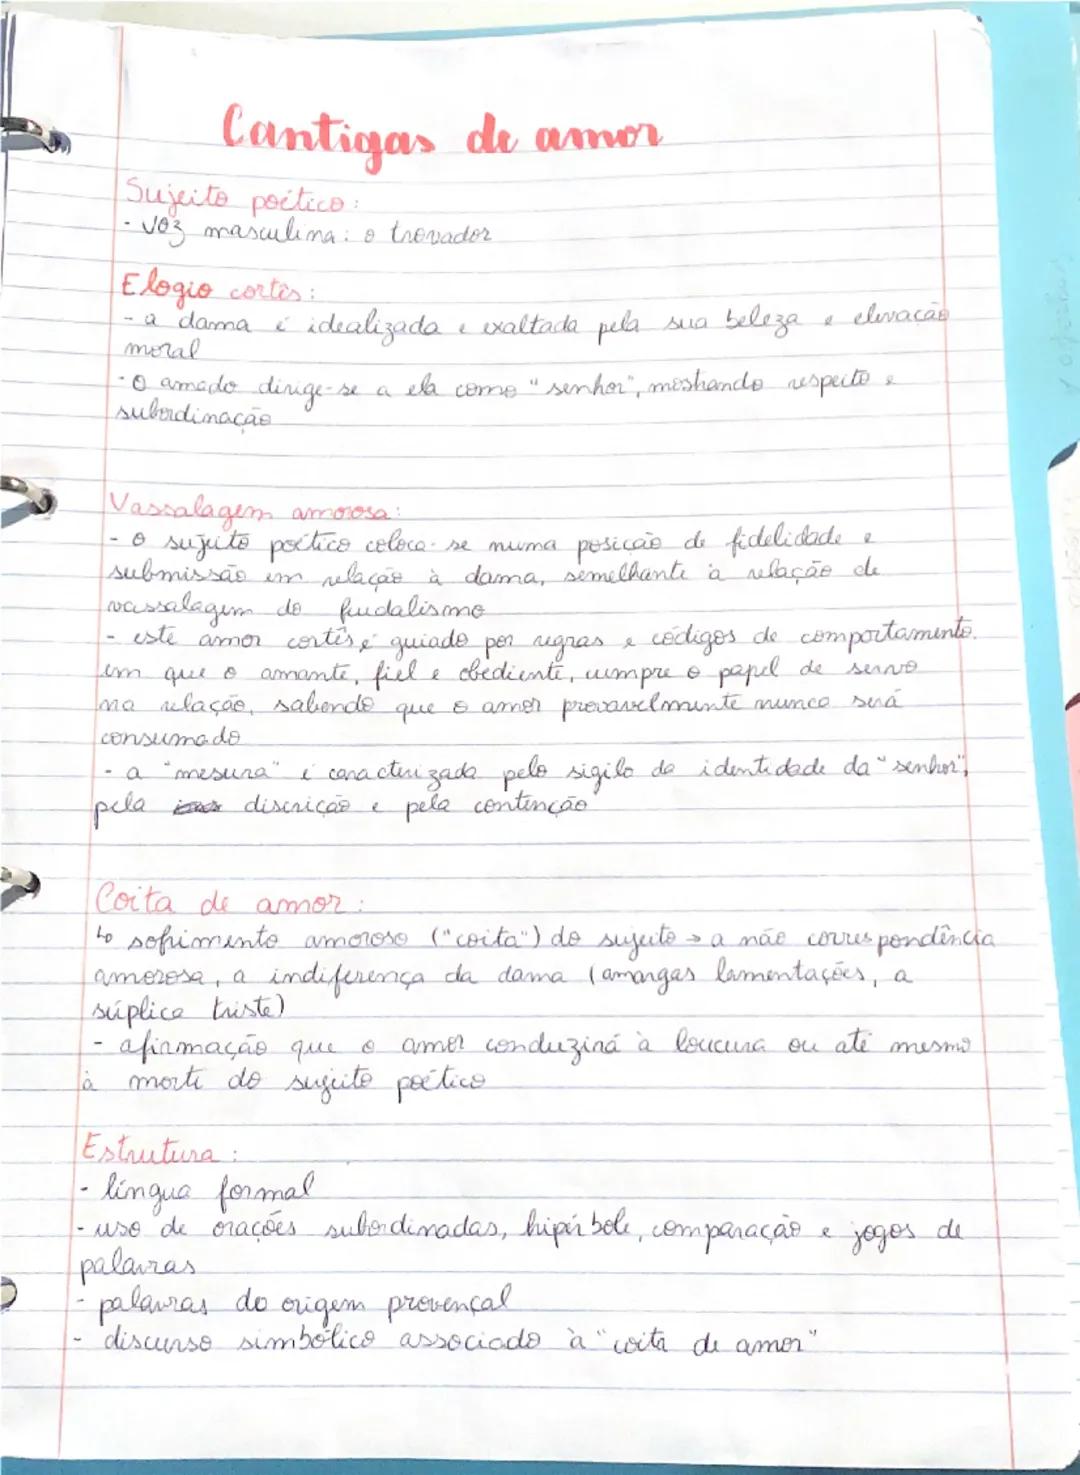 Cantigas de amor
Sujeito poético:
- voz masculina: o trovador
Elogio cortês:
- a dama é idealizada e exaltada pela sua beleza e elevação
moral
- O amado dirige-se a ela como "senhor", mostrando respeito e
subordinação
Vassalagem amorosa:
- o sujeito poético coloca-se numa posição de fidelidade e
submissão em relação à dama, semelhante à relação de
vassalagem do feudalismo
- este amor cortês é guiado por regras e códigos de comportamento.
em que o amante, fiel e obediente, cumpre o papel de servo
na relação, sabendo que o amor provavelmente nunca será
consumado
- a "mesura" é caracterizada pelo sigilo da identidade da "senhor",
pela discrição e pela contenção
Coita de amor:
↳ sofrimento amoroso ("coita") do sujeito → a não correspondência
amorosa, a indiferença da dama (amargas lamentações, a
súplica triste)
- afirmação que o amor conduzirá à loucura ou até mesmo
à morte do sujeito poético
Estrutura:
- língua formal
- uso de orações subordinadas, hipérbole, comparação e jogos de
palavras
- palavras do origem provençal
- discurso simbólico associado à "coita de amor"